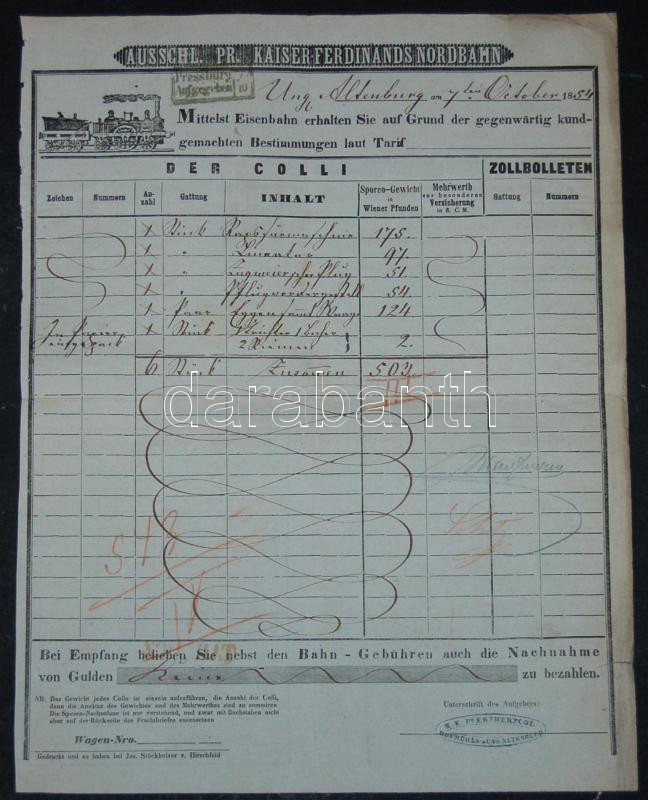 AUSSCHL. PR. KAISER FERDINANDS NORDBAHN
Pressburg
Aufgegeben 10
Ung. Altenburg am 7ten October 1854
Mittelst Eisenbahn erhalten Sie auf Grund der gegenwärtig kund-
gemachten Bestimmungen laut Tarif
DER COLLI ZOLLBOLLETEN
Zeichen Nummern An-zahl Gattung INHALT Sporco-Gewicht in Wiener Pfunden Mehrwerth zur besonderen Versicherung in fl. C. M. Gattung Nummern
1 Stück 175.
1 " 97.
1 " Pflug 51.
1 " 54.
1 Paar Eggen sammt 124
In Papier 1 Stück
2 Riemen 2.
6 Stück Zusamen 503
darabanth
548
Bei Empfang belieben Sie nebst den Bahn-Gebühren auch die Nachnahme
von Gulden Keine zu bezahlen.
NB. Das Gewicht jedes Collo ist einzeln aufzuführen, die Anzahl der Colli,
dann die Ansätze des Gewichtes und des Mehrwerthes sind zu summiren
Die Spesen-Nachnahme ist nur vorstehend, und zwar mit Buchstaben nicht
aber auf der Rückseite des Frachtbriefes auzusetzen
Unterschrift des Aufgebers:
Wagen-Nro.
Gedruckt und zu haben bei Jos. Stöckholzer v. Hirschfeld